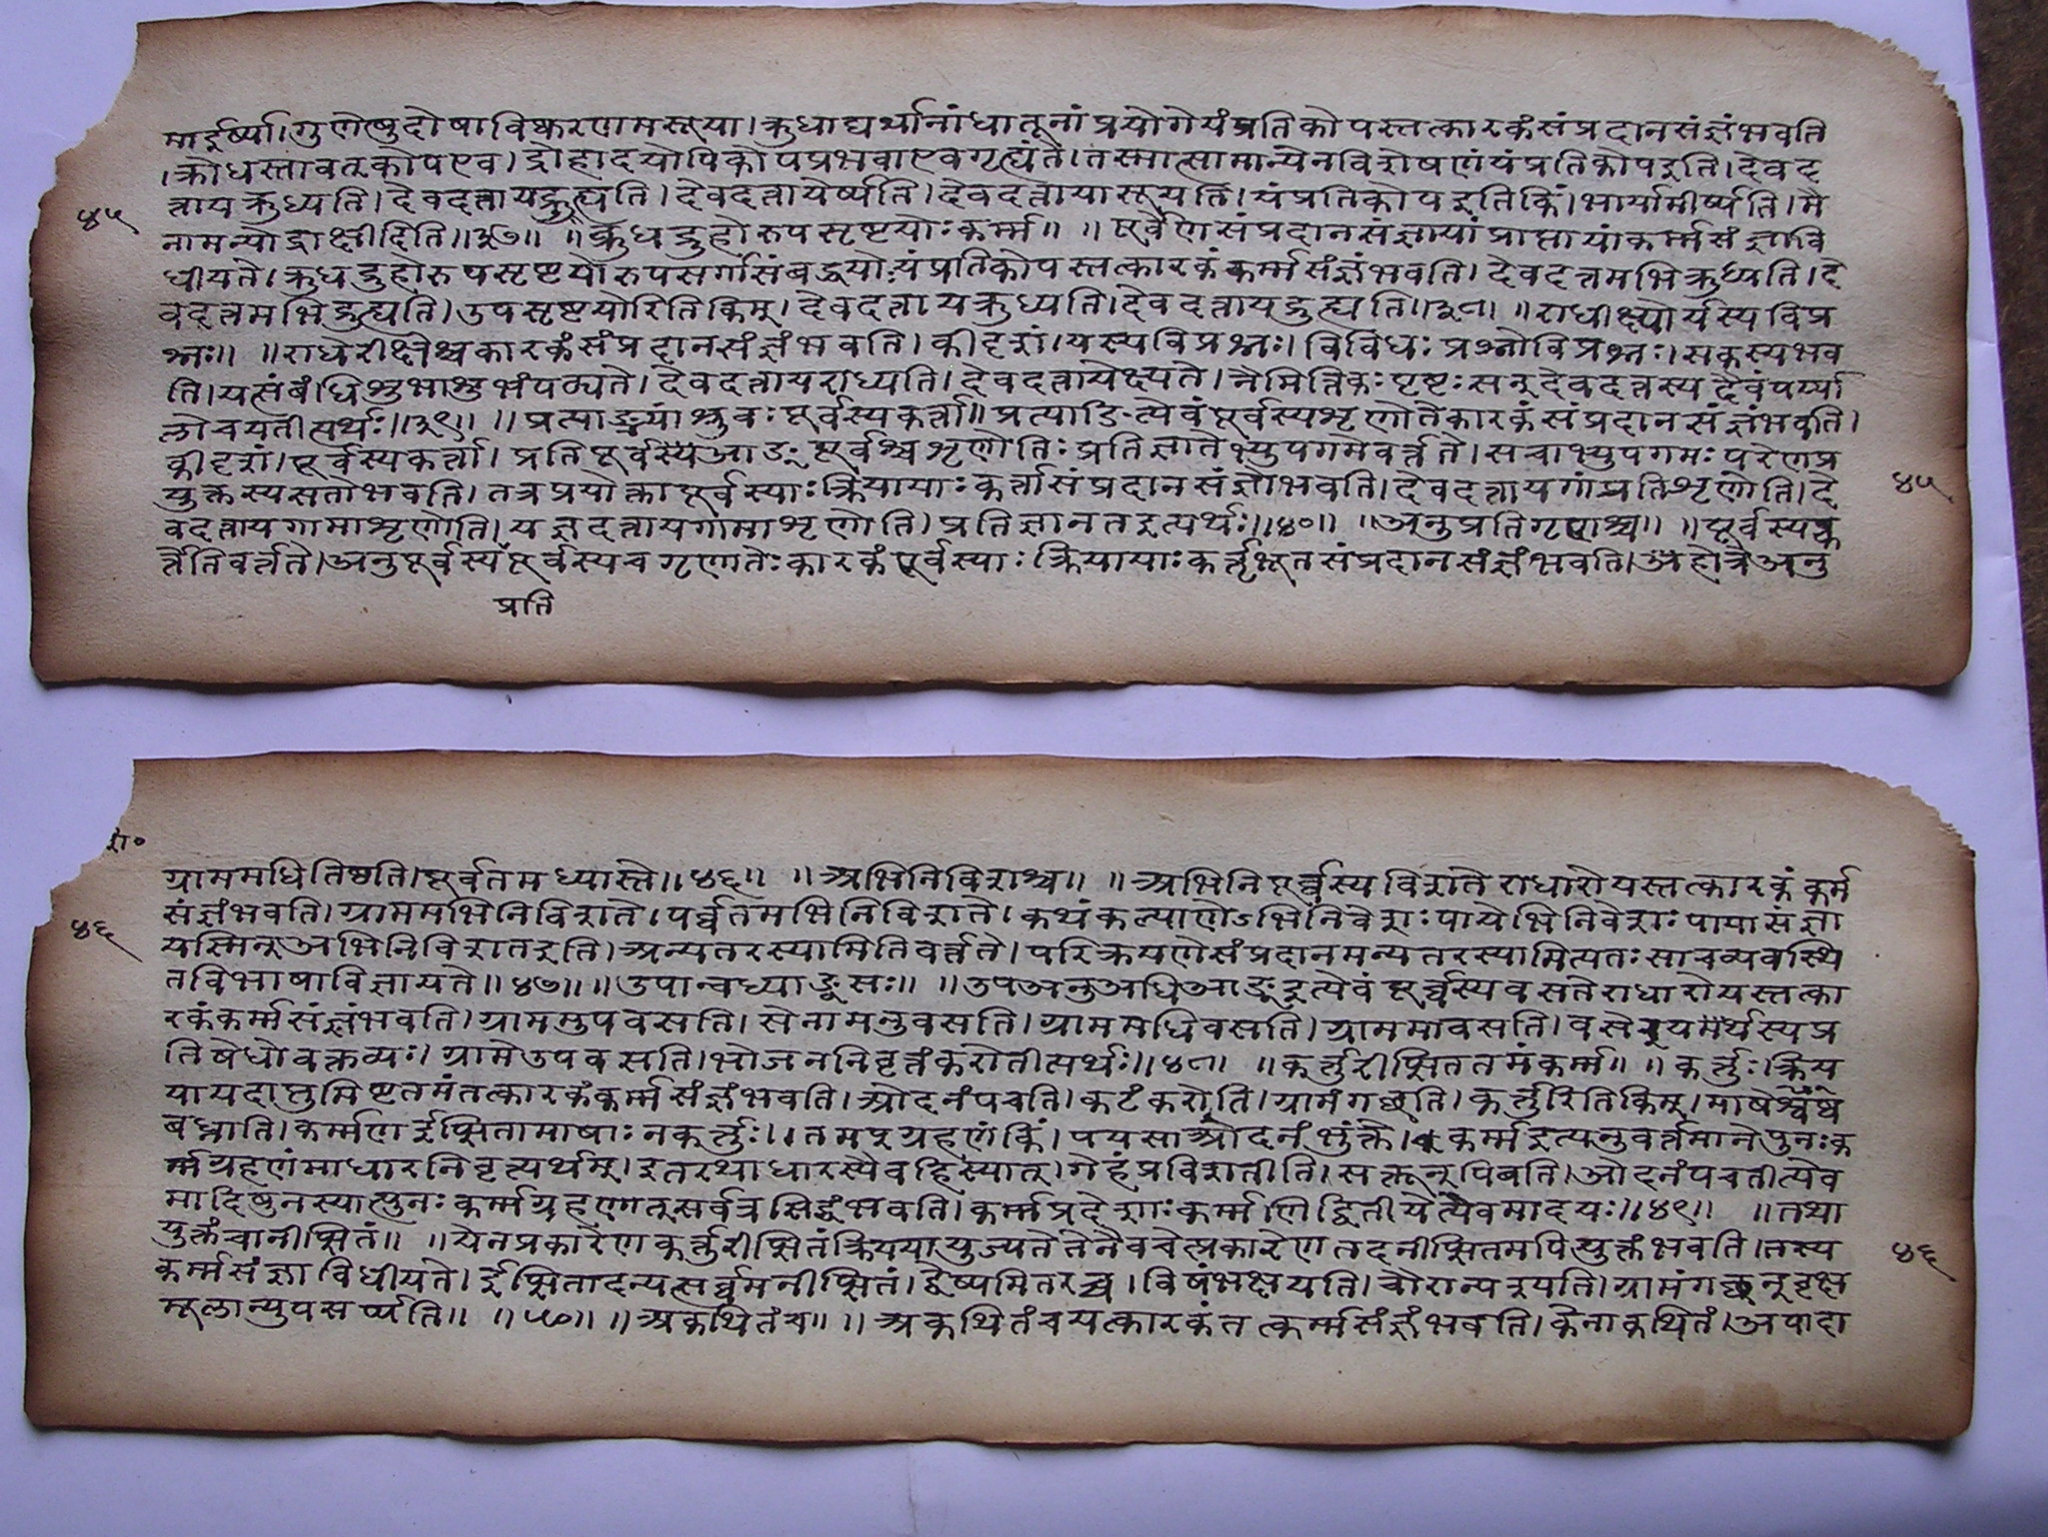 मार्ईर्ष्या।गुणेषुदोषाविष्करणमसूया।क्रुधाद्यर्थानांधातूनांप्रयोगेयंप्रतिकोपस्तत्कारकंसंप्रदानसंज्ञंभवति
।क्रोधस्तावत्कोपएव।द्रोहादयोपिकोपप्रभवाएवगृह्यंते।तस्मात्सामान्येनविशेषणंयंप्रतिकोपइति।देवद
त्तायक्रुध्यति।देवदत्तायद्रुह्यति।देवदत्तायेर्ष्यति।देवदत्तायासूयति।यंप्रतिकोपइतिकिं।भार्यामीर्ष्यति।मै
४५
नामन्योद्राक्षीदिति॥३७॥ ॥क्रुधद्रुहोरुपसृष्टयोःकर्म्म॥ ॥पूर्वेणसंप्रदानसंज्ञायांप्राप्तायांकर्म्मसंज्ञावि
धीयते।क्रुधद्रुहोरुपसृष्टयोरुपसर्गसंबद्धयोःयंप्रतिकोपस्तत्कारकंकर्म्मसंज्ञंभवति।देवदत्तमभिक्रुध्यति।दे
वदत्तमभिद्रुह्यति।उपसृष्टयोरितिकिम्।देवदत्तायक्रुध्यति।देवदत्तायद्रुह्यति॥३८॥ ॥राधीक्ष्योर्यस्यविप्र
श्नः॥ ॥राधेरीक्षेश्चकारकंसंप्रदानसंज्ञंभवति।कीदृशं।यस्यविप्रश्नः।विविधःप्रश्नोविप्रश्नः।सकस्यभव
ति।यत्संबंधिशुभाशुभंपठ्यते।देवदत्तायराध्यति।देवदत्तायेक्ष्यते।नैमित्तिकःपृष्टःसन्देवदत्तस्यदैवंपर्य्या
लोचयतीत्यर्थः॥३९॥ ॥प्रत्याङ्भ्यांश्रुवःपूर्वस्यकर्त्ता॥प्रत्याङित्येवंपूर्वस्यशृणोतेकारकंसंप्रदानसंज्ञंभवति।
कीदृशं।पूर्वस्यकर्त्ता।प्रतिपूर्वस्यआङ्पूर्वश्चशृणोतिःप्रतिज्ञातेभ्युपगमेवर्त्तते।सचाभ्युपगमःपरेणप्र
४५
युक्तस्यसतोभवति।तत्रप्रयोक्तापूर्वस्याःक्रियायाःकर्त्तासंप्रदानसंज्ञोभवति।देवदत्तायगांप्रतिशृणोति।दे
वदत्तायगामाशृणोति।यज्ञदत्तायगामाशृणोति।प्रतिज्ञानतइत्यर्थः॥४०॥ ॥अनुप्रतिगृणश्च॥ ॥पूर्वस्यक
र्त्तेतिवर्त्तते।अनुपूर्वस्यपूर्वस्यचगृणातेःकारकंपूर्वस्याःक्रियायाःकर्तृभूतसंप्रदानसंज्ञंभवति।होत्रेअनु
प्रति
शा०
ग्राममधितिष्ठति।पूर्वतमध्यास्ते॥४६॥ ॥अभिनिविशश्च॥ ॥अभिनिपूर्व्वस्यविशतेराधारोयस्तत्कारकंकर्म
४६
संज्ञंभवति।ग्राममभिनिविशते।पर्व्वतमभिनिविशते।कथंकल्याणेऽभिनिवेशःपायेभिनिवेशःपायासंज्ञा
यस्मिन्अभिनिविशतइति।अन्यतरस्यामितिवर्त्तते।परिक्रयणेसंप्रदानमन्यतरस्यामित्यतःसाचव्यवस्थि
तविभाषाविज्ञायते॥४७॥॥उपान्वध्याङ्वसः॥ ॥उपअनुअधिआङ्इत्येवंपूर्व्वस्यवसतेराधारोयस्तत्का
रकंकर्म्मसंज्ञंभवति।ग्राममुपवसति।सेनामनुवसति।ग्राममधिवसति।ग्राममावसति।वसेरश्यर्थस्यप्र
तिषेधोवक्तव्यः।ग्रामेउपवसति।भोजननिवृत्तंकरोतीत्यर्थः॥४८॥ ॥कर्त्तुरीप्सिततमंकर्म्म॥ ॥कर्त्तुःक्रिय
यायदाप्तुमिष्टतमंतत्कारकंकर्म्मसंज्ञंभवति।ओदनंपचति।कटंकरोति।ग्रामंगच्छति।कर्त्तुरितिकिम्।माषेष्वश्वं
बध्नाति।कर्म्मणईप्सितामाषाःनकर्त्तुः।।तमप्ग्रहणंकिं।पयसाओदनंभुंक्ते।कर्म्मइत्यनुवर्तमानेपुनःक
र्म्मग्रहणंमाधारनिवृत्यर्थम्।इतरथाधारस्यैवहिस्यात्।गेहंप्रविशतीति।सक्तून्पिबति।ओदनंपचतीत्येव
मादिषुनस्यात्पुनःकर्म्मग्रहणात्सर्वत्रसिद्धंभवति।कर्म्मप्रदेशाःकर्म्मणिद्वितीयेत्यैवमादयः॥४९॥ ॥तथा
युक्तंचानीप्सितं॥ ॥येनप्रकारेणकर्त्तुरीप्सितंक्रिययायुज्यतेतेनैवचेत्प्रकारेणतदनीप्सितमपियुक्तंभवति।तस्य
४६
कर्म्मसंज्ञाविधीयते।ईप्सितादन्यत्सर्व्वमनीप्सितं।द्वेष्यमितरच्च।विषंभक्षयति।चोरान्पश्यति।ग्रामंगच्छन्वृक्ष
मूलान्युपसर्प्पति॥ ॥५०॥ ॥अकथितंच॥ ॥अकथितंचयत्कारकंतत्कर्म्मसंज्ञंभवति।केनाकथितं।अपादा